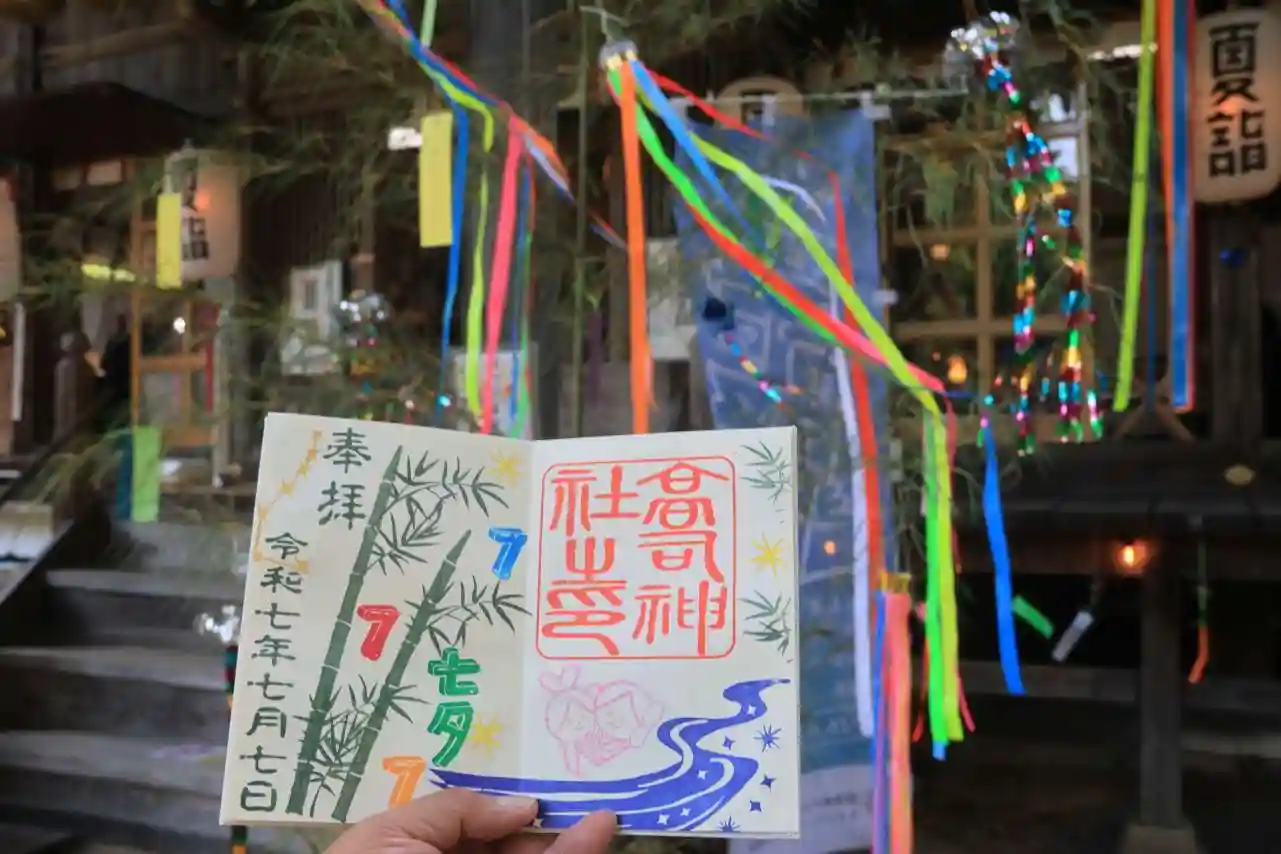 奉拝
令和七年七月七日
7
7
7
七夕
高司神
社之印
夏詣